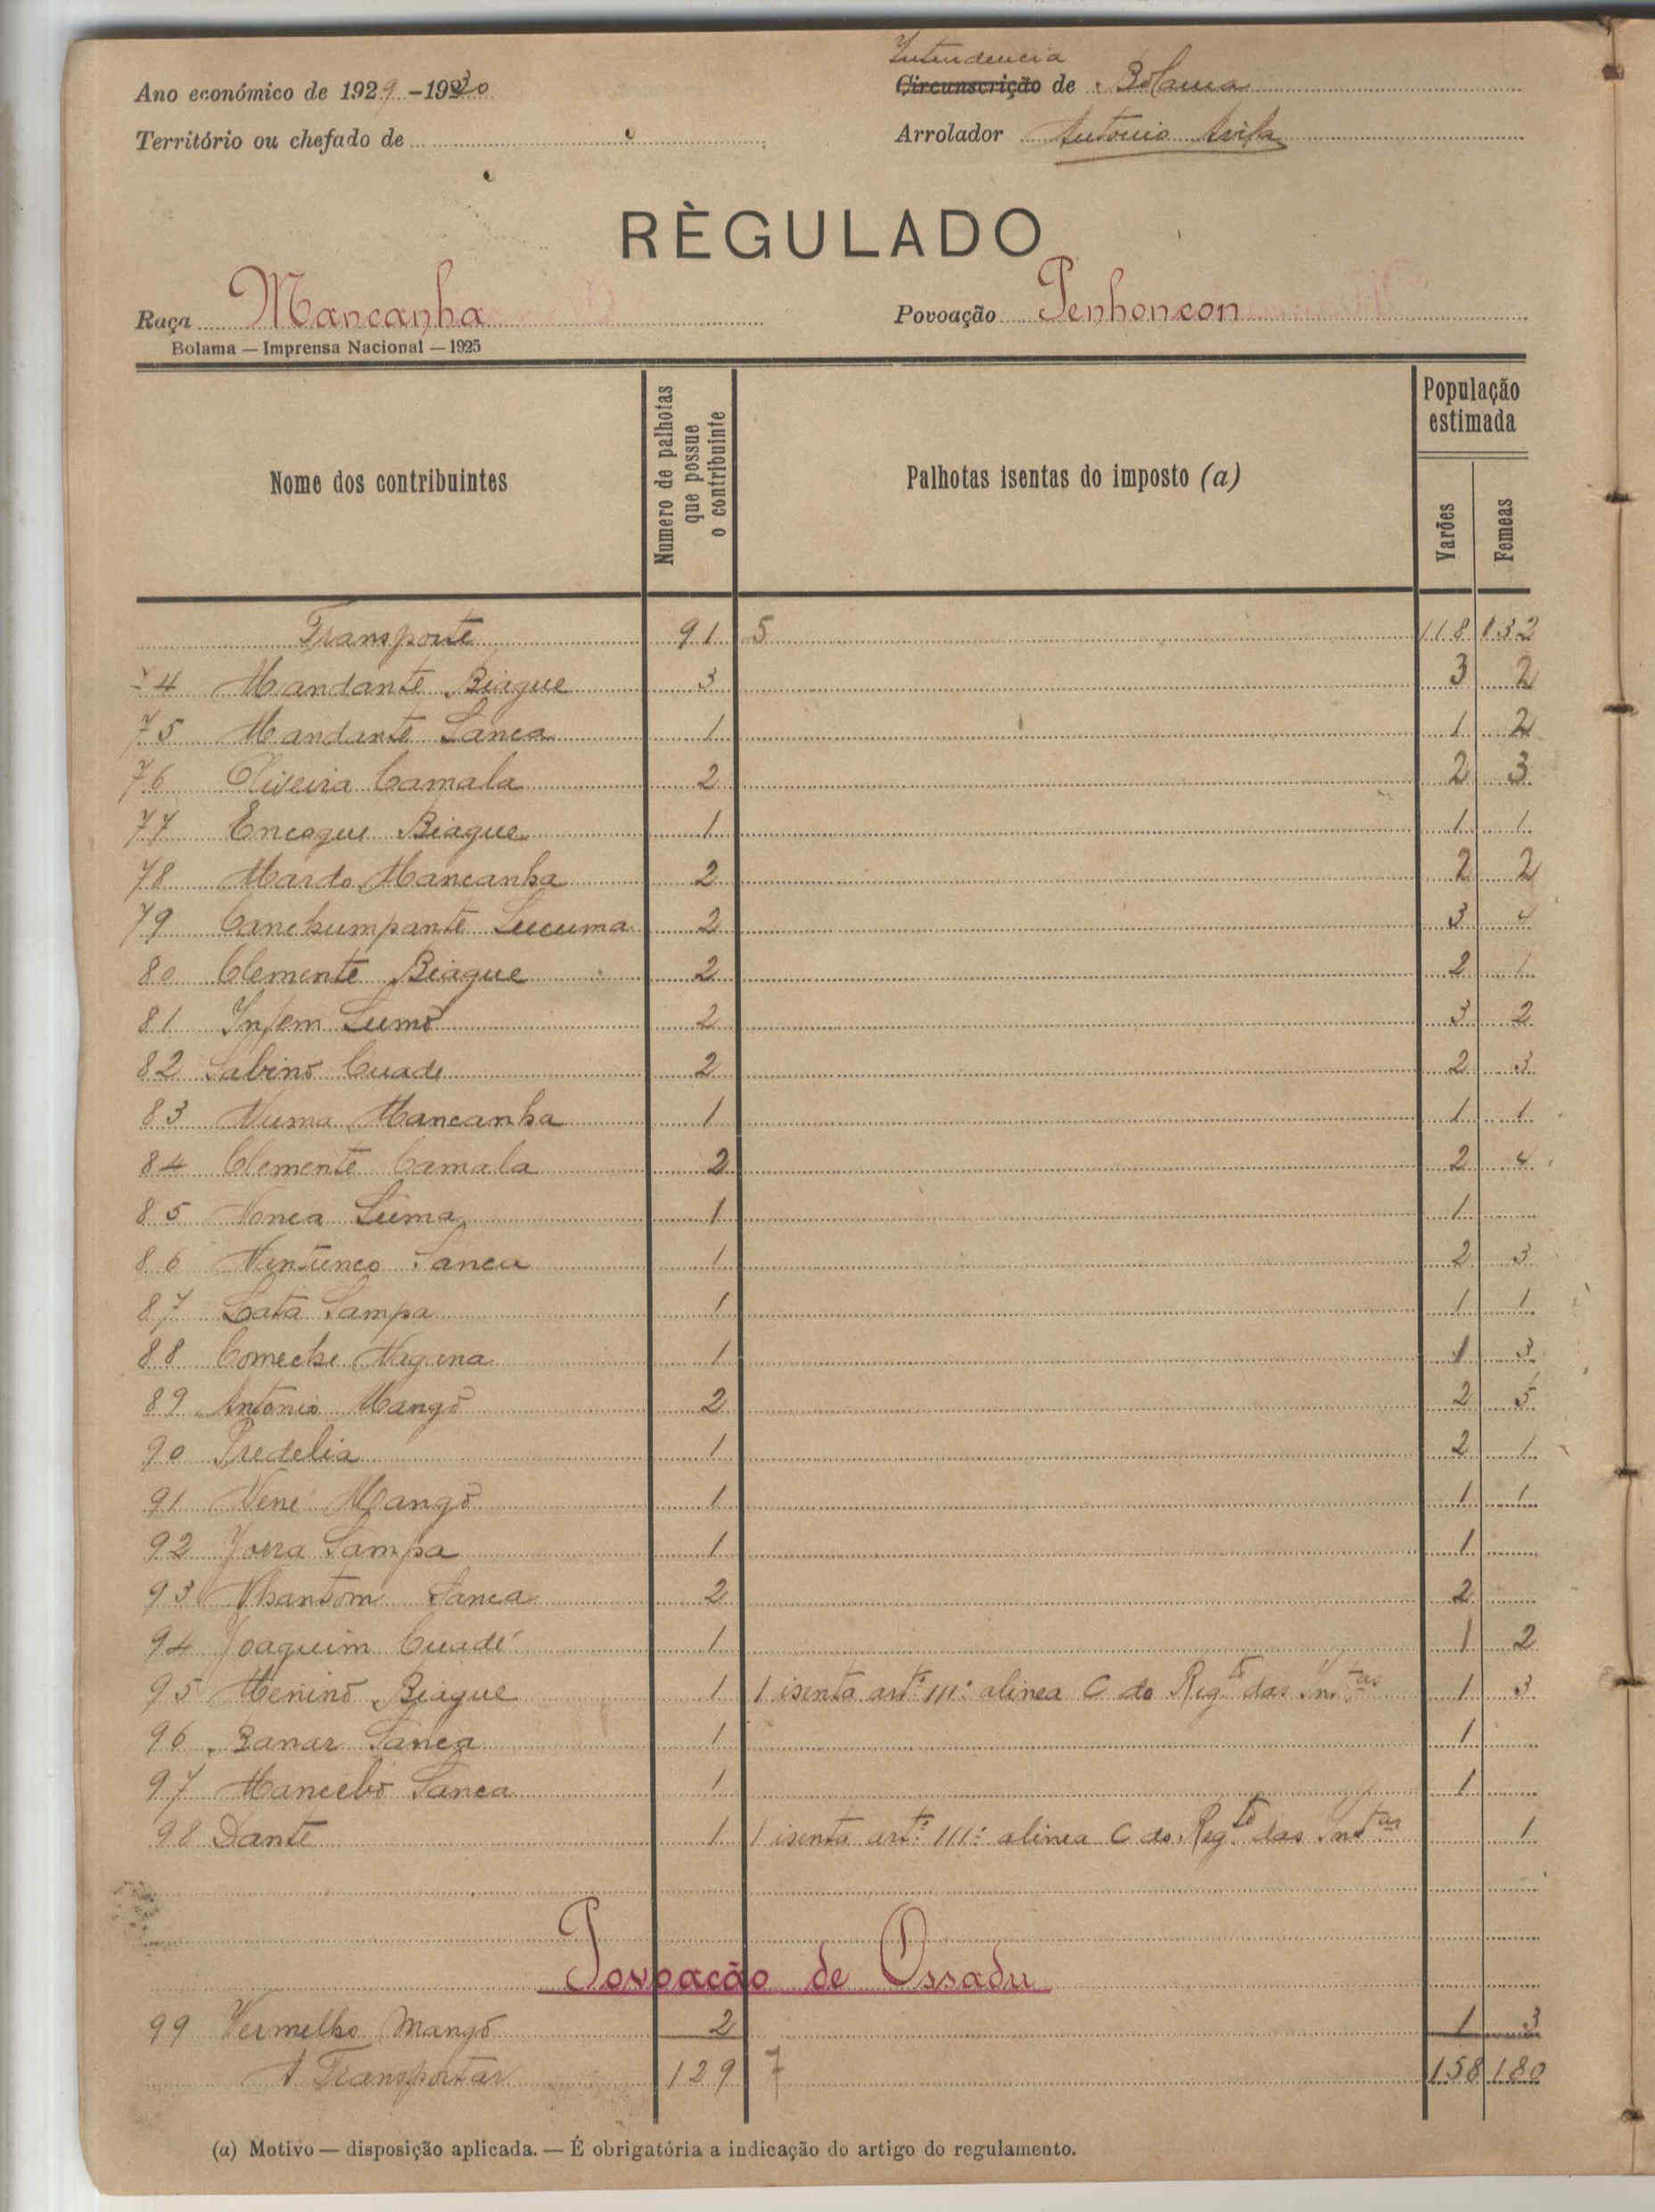 Intendencia
Ano económico de 1929-1930 Circunscrição de Bolama
Território ou chefado de Arrolador Antonio Avila
RÈGULADO
Raça Mancanha Povoação Penhoncon
Bolama — Imprensa Nacional — 1925
Nome dos contribuintes Numero de palhotas que possue o contribuinte Palhotas isentas do imposto (a) População estimada Varões Femeas
Transporte 91 5 118 132
74 Mandante Biague 3 3 2
75 Mandante Sanca 1 1 2
76 Oliveira Camala 2 2 3
77 Encague Biague 1 1 1
78 Mardo Mancanha 2 2 2
79 Canchumpante Lucuma 2 3 4
80 Clemente Biague 2 2 1
81 Injem Lumo 2 3 2
82 Sabino Cuade 2 2 3
83 Numa Mancanha 1 1 1
84 Clemente Camala 2 2 4
85 Nonca Luma 1 1
86 Nintunco Sanca 1 2 3
87 Lata Sampa 1 1 1
88 Comeche Nagana 1 1 3
89 Antonio Mangõ 2 2 5
90 Predelia 1 2 1
91 Nené Mangõ 1 1 1
92 Joera Sampa 1 1
93 Nhantom Sanca 2 2
94 Joaquim Cuadé 1 1 2
95 Menino Biague 1 1 isenta artº 111º alinea C do Regto das Instas 1 3
96 Banar Sanca 1 1
97 Mancebo Sanca 1 1
98 Dante 1 1 isenta artº 111º alinea C do Regto das Instas 1
Povoacão de Ossadu
99 Vermelho Mangõ 2 1 3
A Transportar 129 7 158 180
(a) Motivo — disposição aplicada. — É obrigatória a indicação do artigo do regulamento.